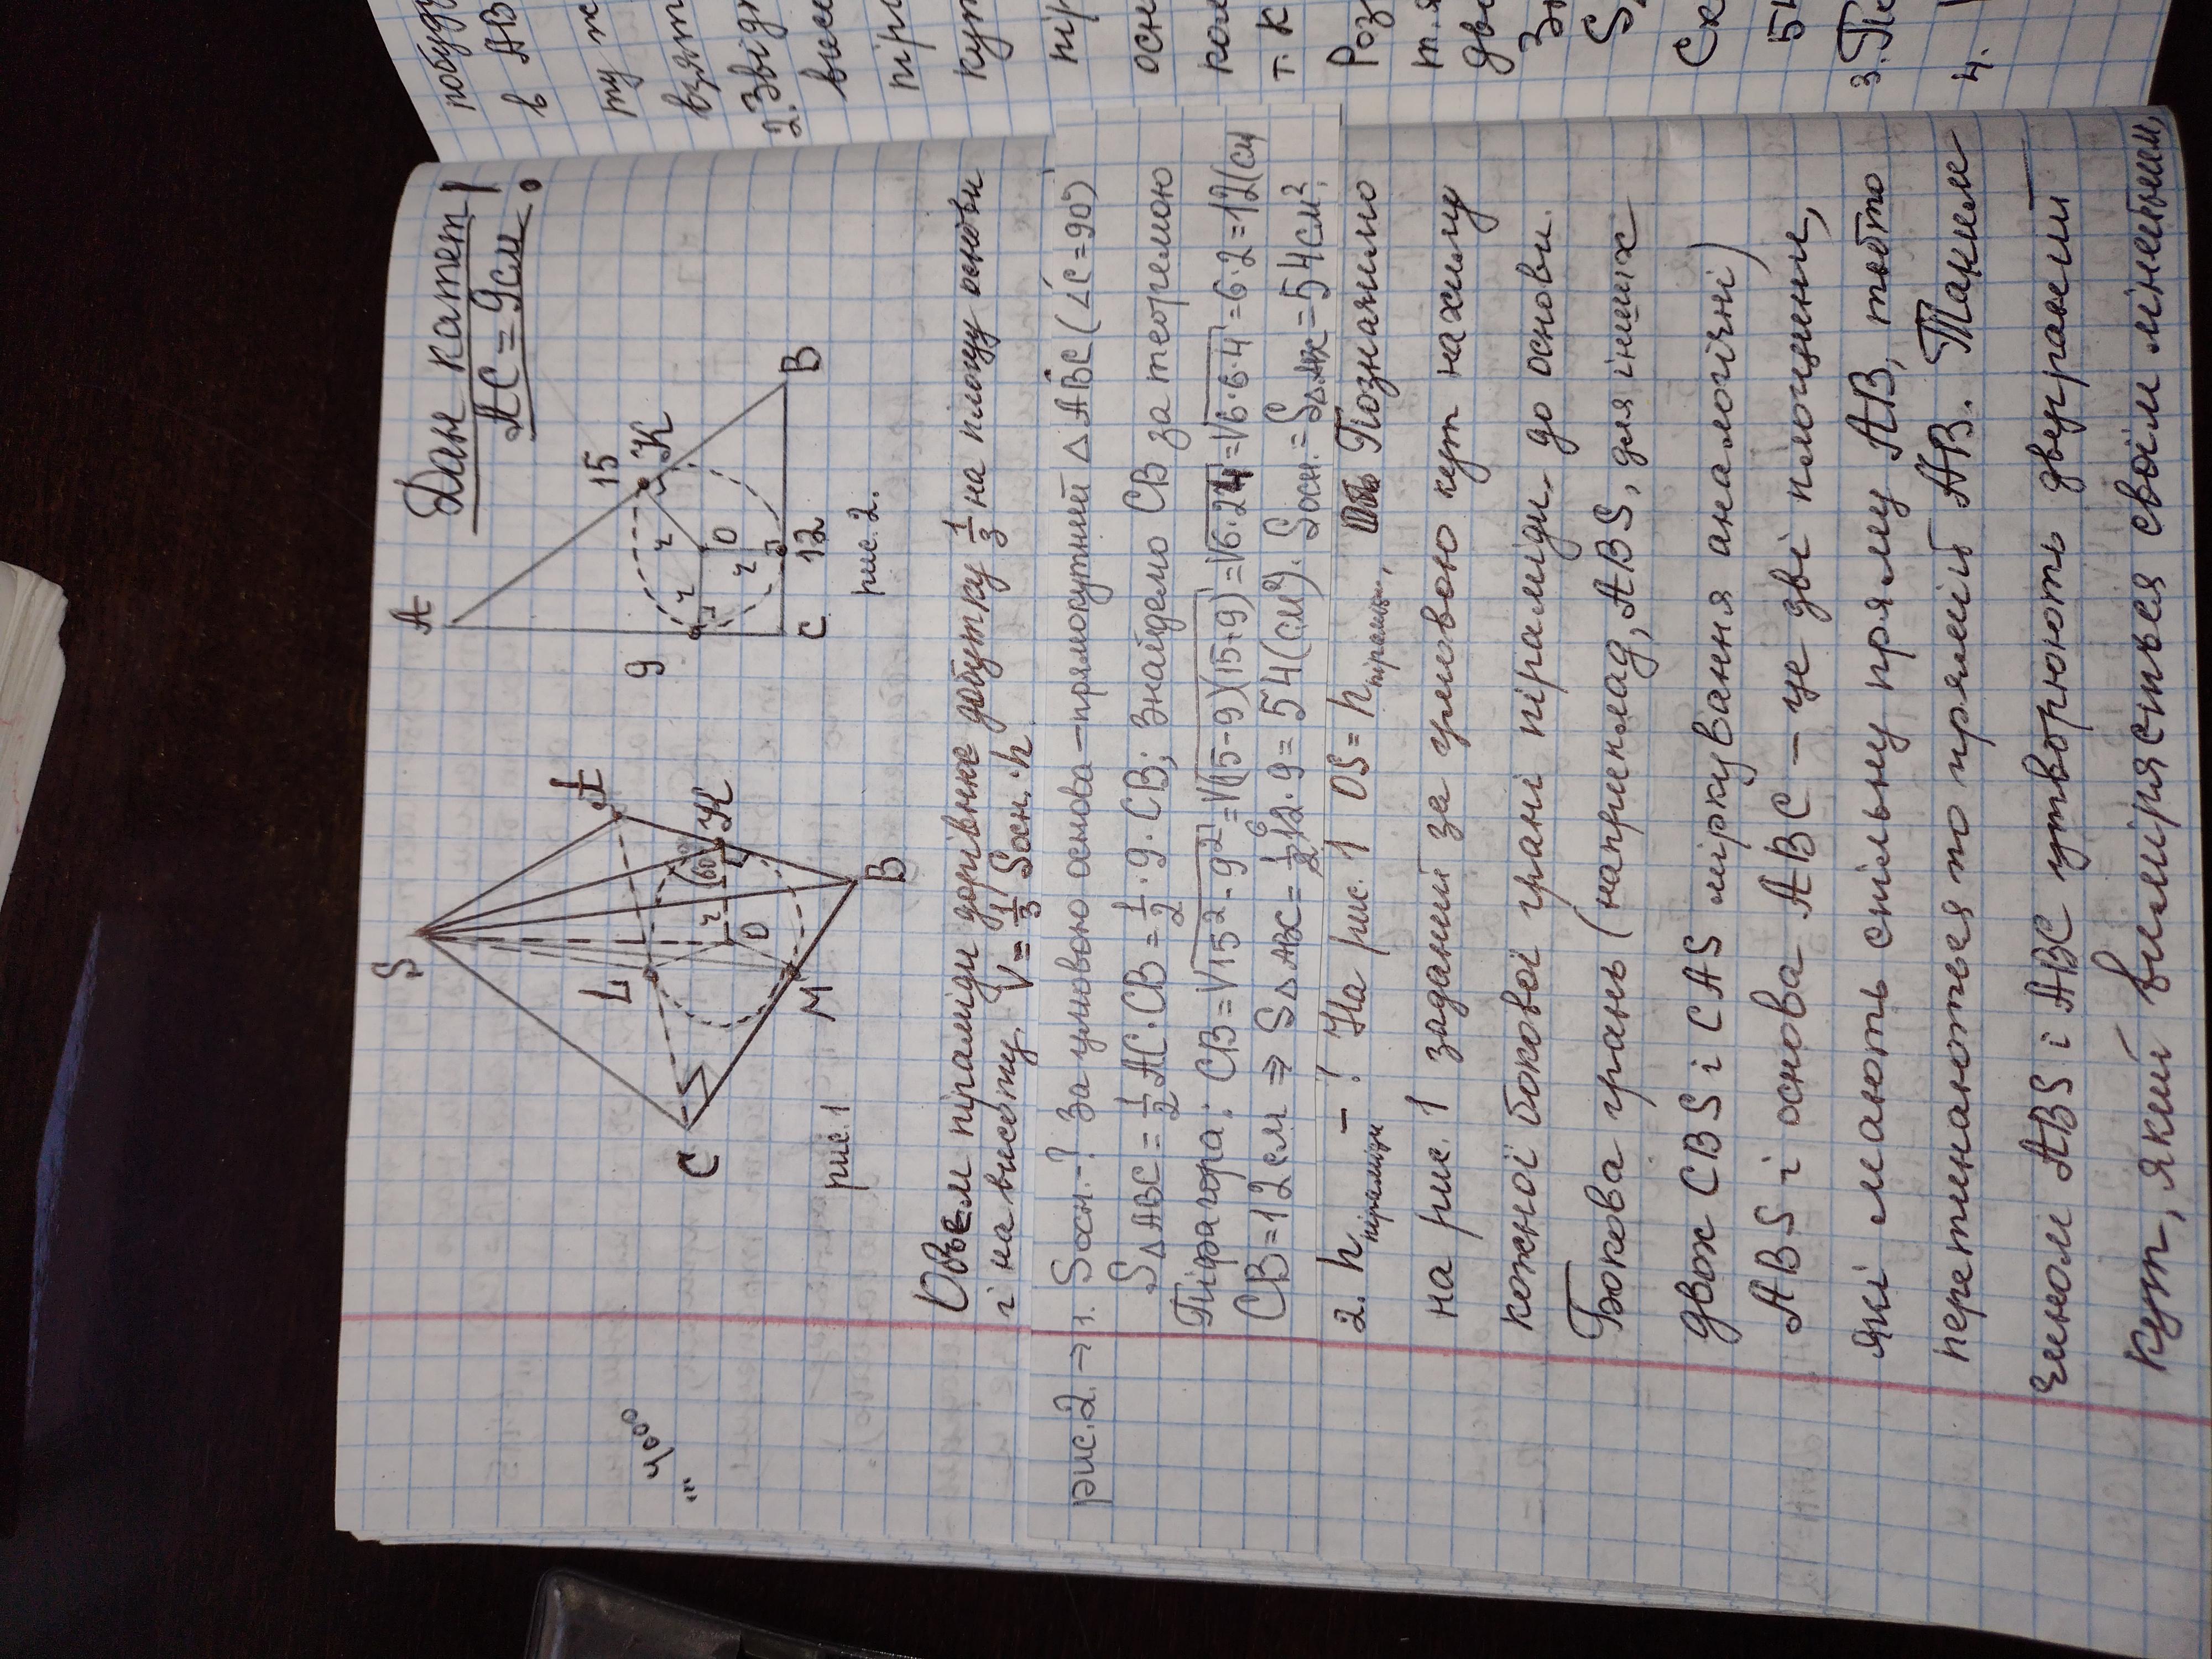 Дан катет!
АС = 9см.
S
L
A
60°
K
r
O
C
M
B
рис. 1
A
15
K
9
r
r
r
O
C
12
B
рис. 2.
"400"
Обьем піраміди дорівнює добутку 1/3 на площу основи
і на висоту. V = 1/3 Sосн. · h
рис. 2 → 1. Sосн. - ? За умовою основа – прямокутний △ ABC (∠C = 90°)
S△ABC = 1/2 AC · CB = 1/2 · 9 · CB; Знайдемо CB за теоремою
Піфагора: CB = √15² - 9² = √(15-9)(15+9) = √6·24 = √6·6·4 = 6·2 = 12 (см
CB = 12 см ⇒ S△ABC = 1/2 12 · 9 = 54 (см²). Sосн. = S△ABC = 54 см².
2. hпіраміди - ? На рис. 1 OS = hпірамиди. Позначимо
на рис. 1 заданий за умовою кут нахилу
кожної бокової грані піраміди до основи.
Бокова грань (наприклад, ABS, для інших
двох CBS і CAS міркування аналогічні)
ABS і основа ABC – це дві площини,
які мають спільну пряму AB, тобто
перетинаються по прямій AB. Таким
чином ABS і ABC утворюють двугранний
кут, який вимірясться своїм лінейним,
побуду
в АВ
ту т
взят
2. Звідн
висо
піра
кут
пір
осн
кол
т. К
Роз
т. я
дво
Зн
S
Ск
54
3. По
4.